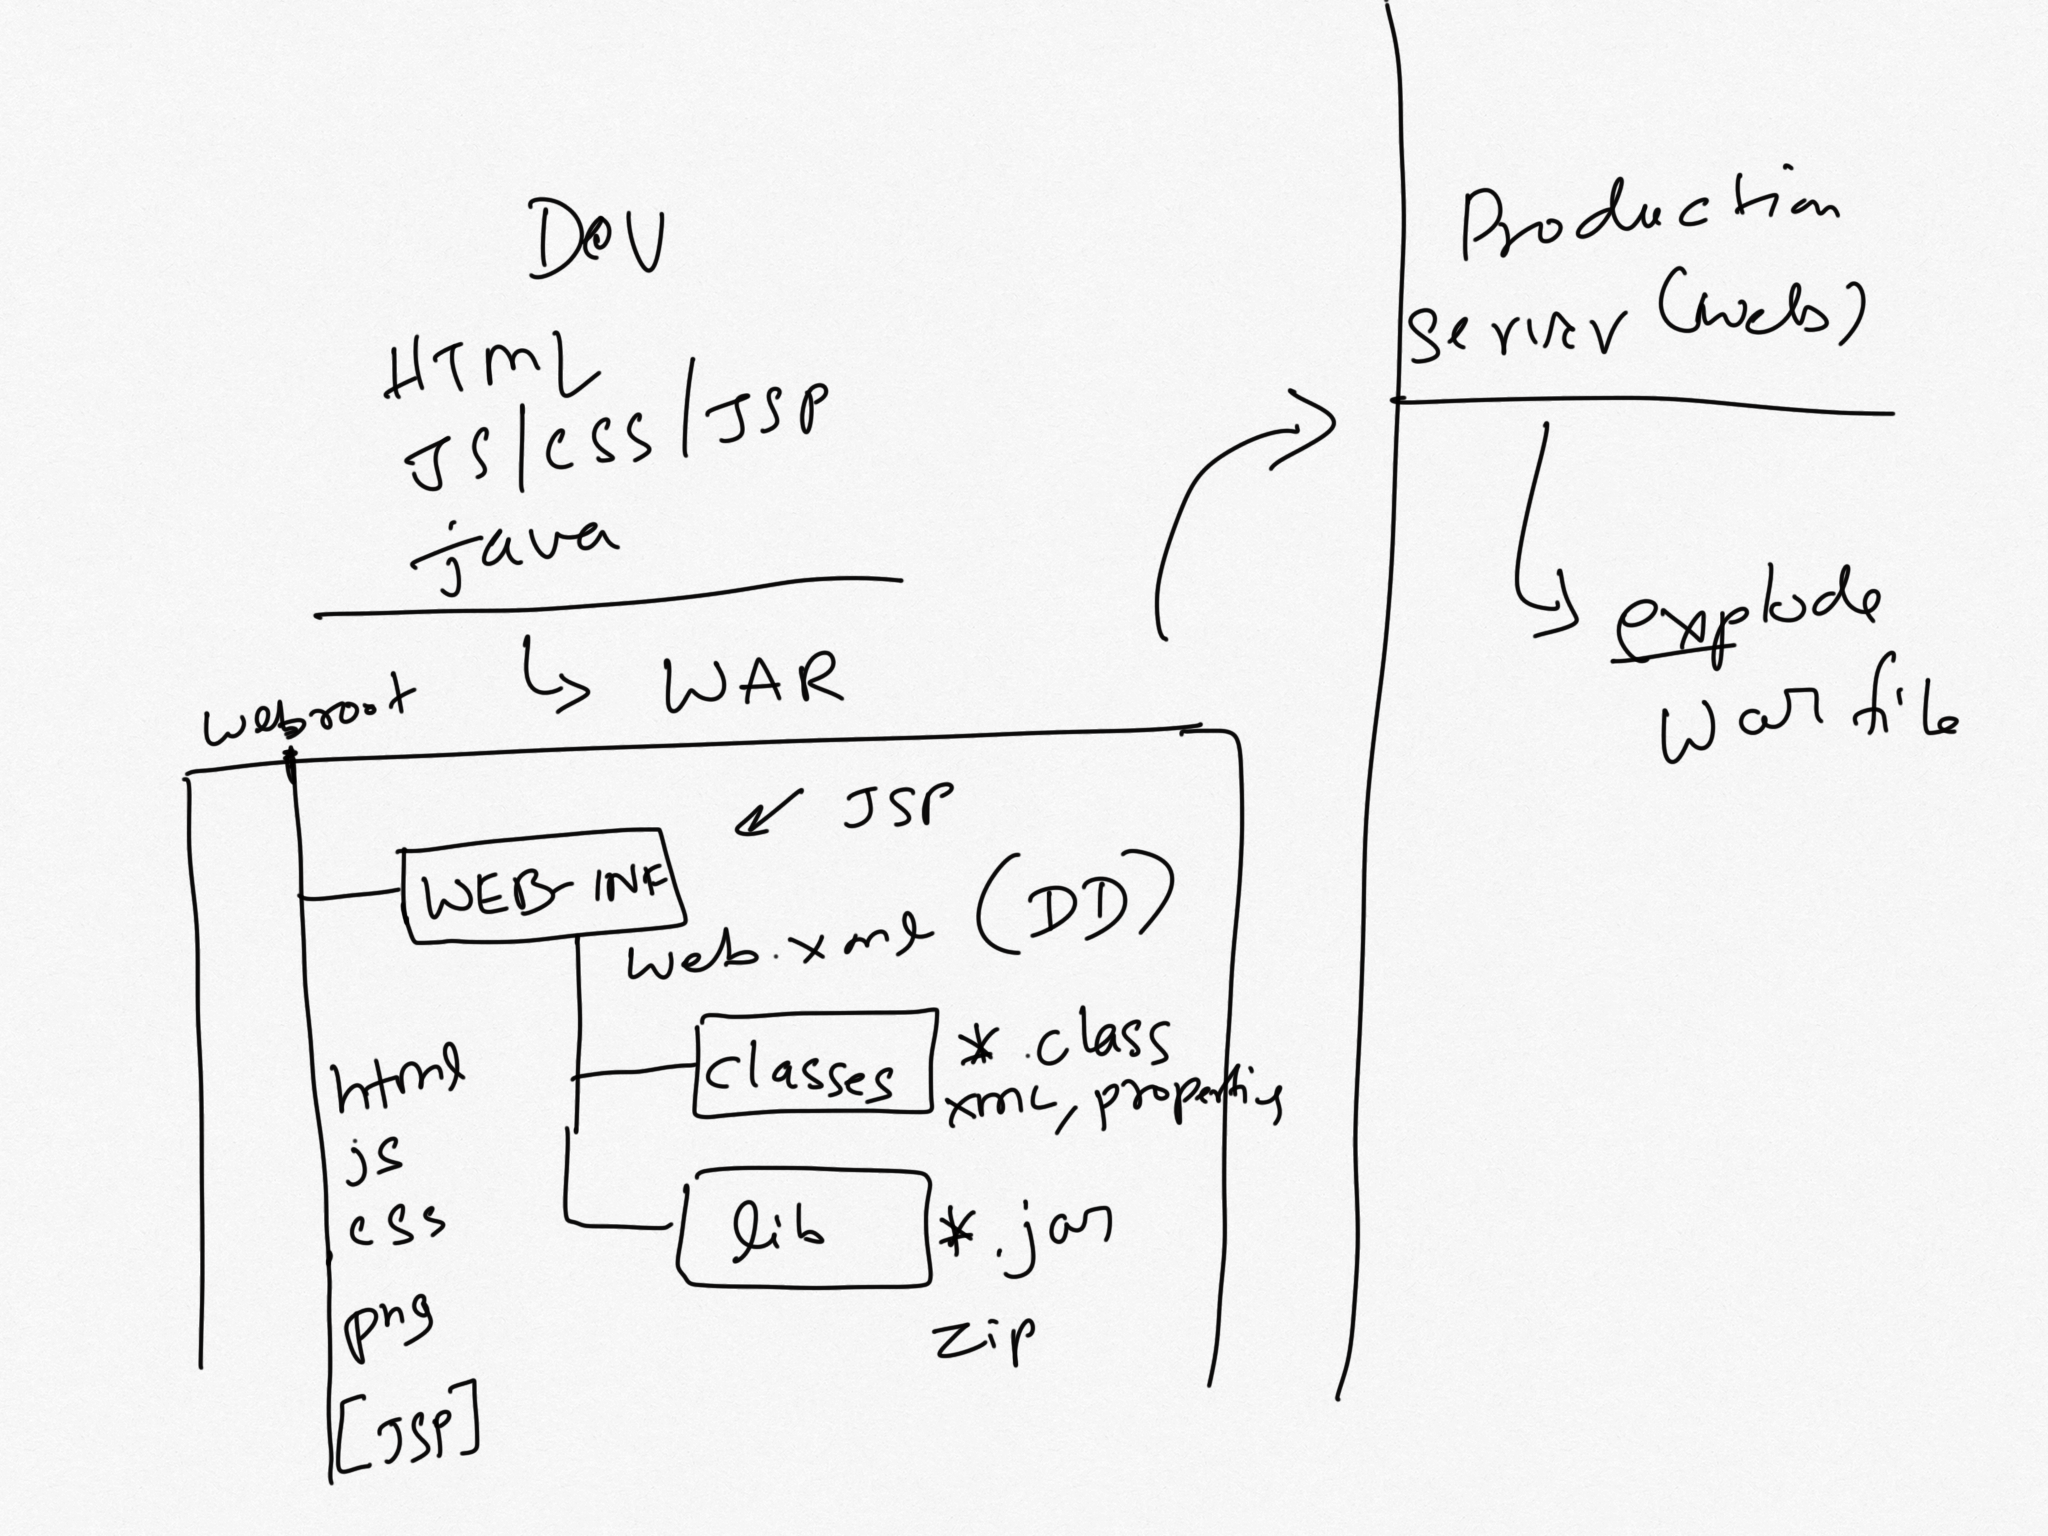 Dev
HTML
JS/CSS/JSP
java
WAR
webroot
JSP
WEB-INF
web.xml (DD)
classes *.class
xml, properties
lib *.jar
zip
html
js
css
png
[JSP]
Production
Server (web)
explode
war file